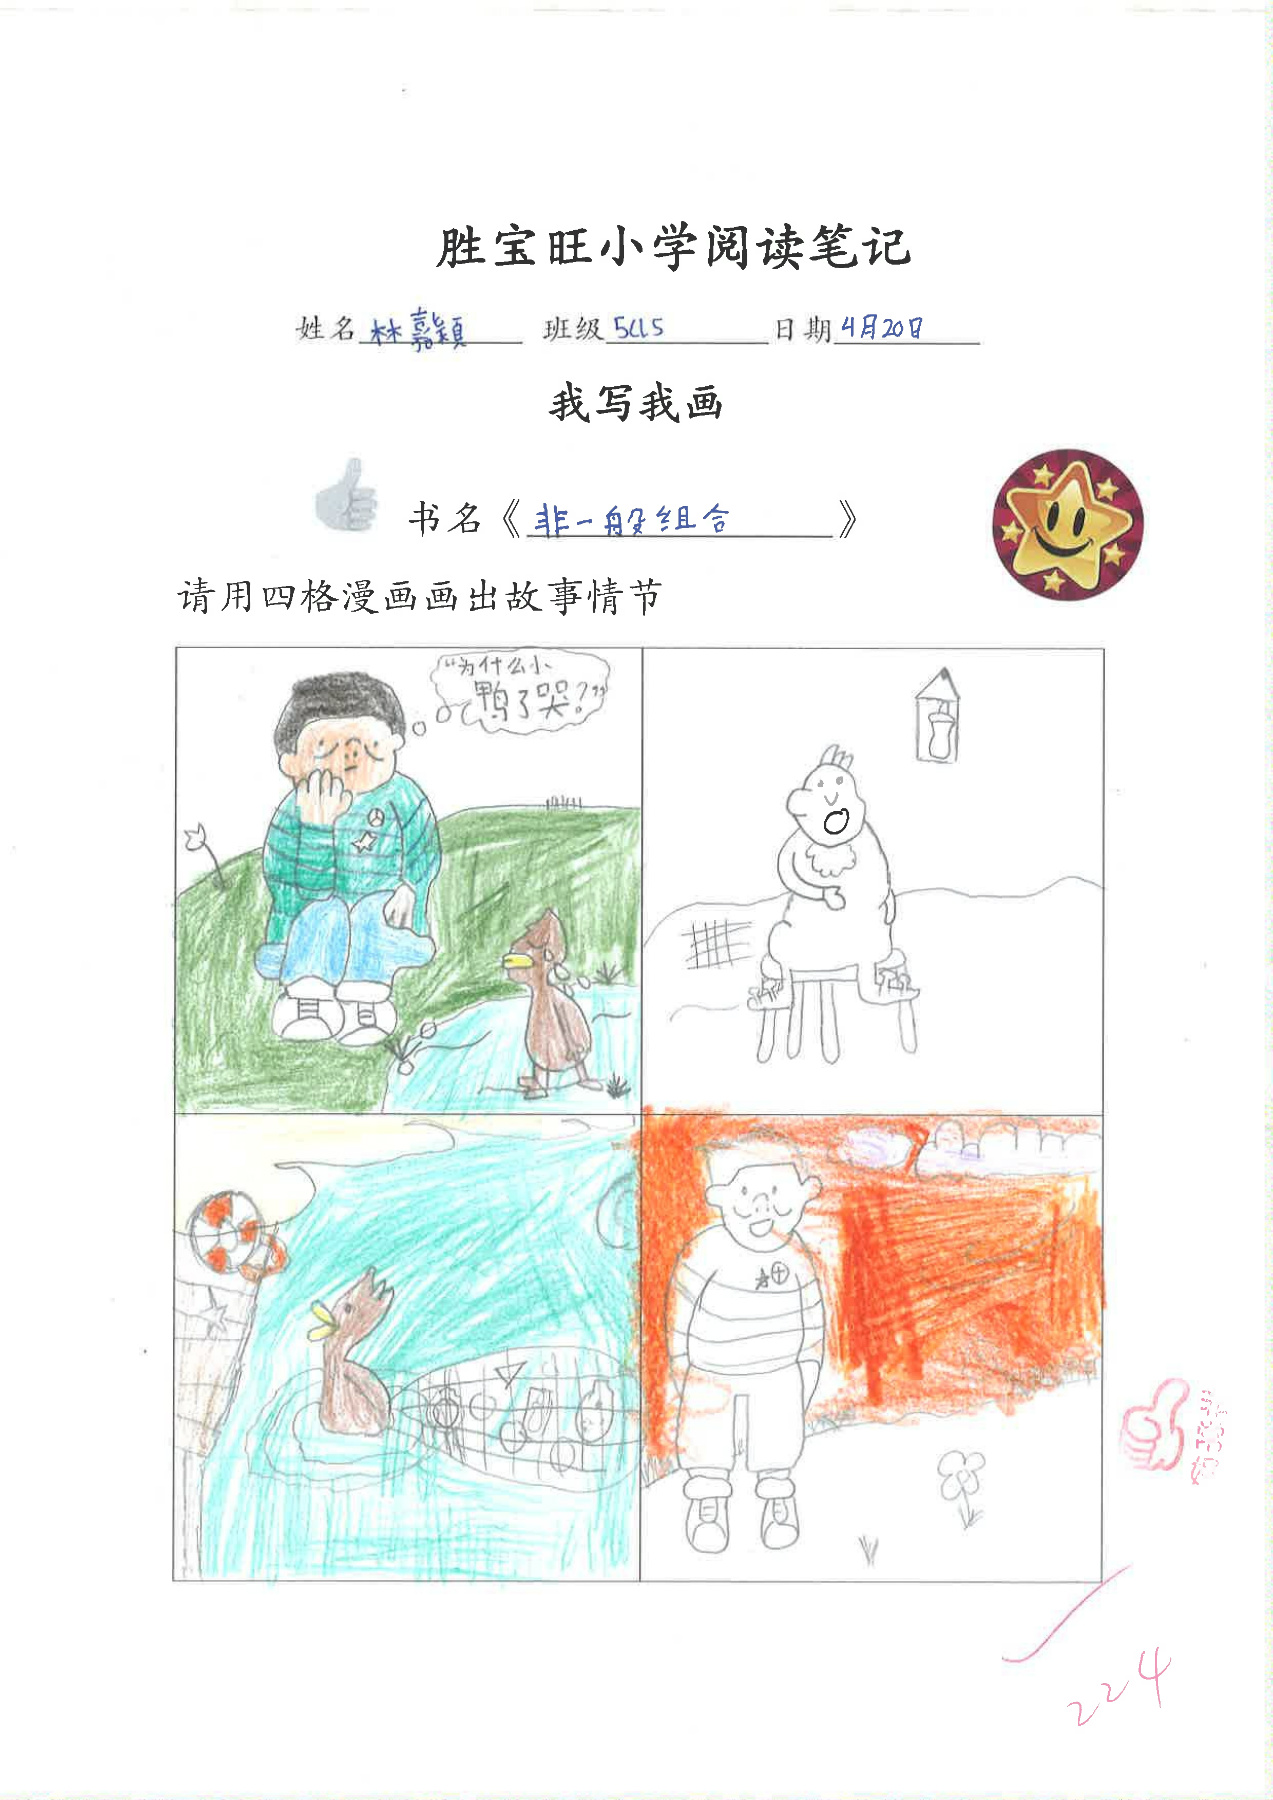 胜宝旺小学阅读笔记
姓名 林嘉颖 班级 5CL5 日期 4月20日
我写我画
书名《非一般组合》
请用四格漫画画出故事情节
“为什么小
鸭了哭?”
224